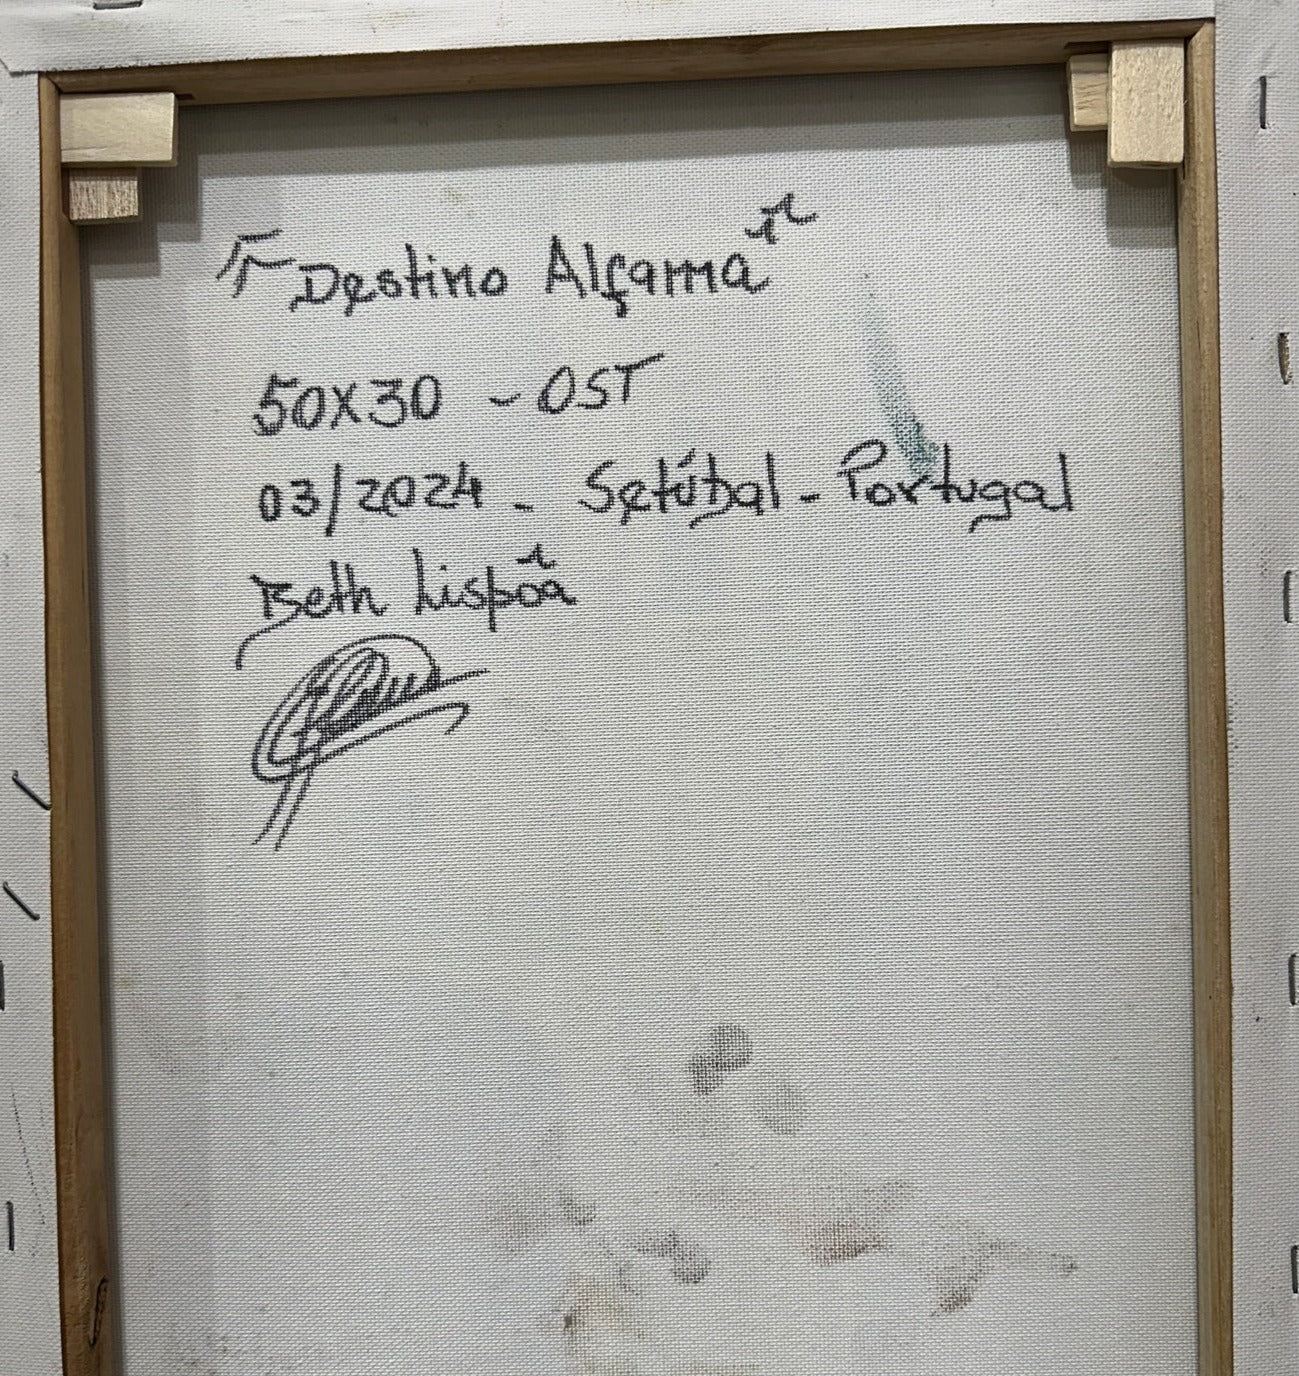 "Destino Alfama"
50X30 - OST
03/2024 - Setúbal - Portugal
Beth Lispôa